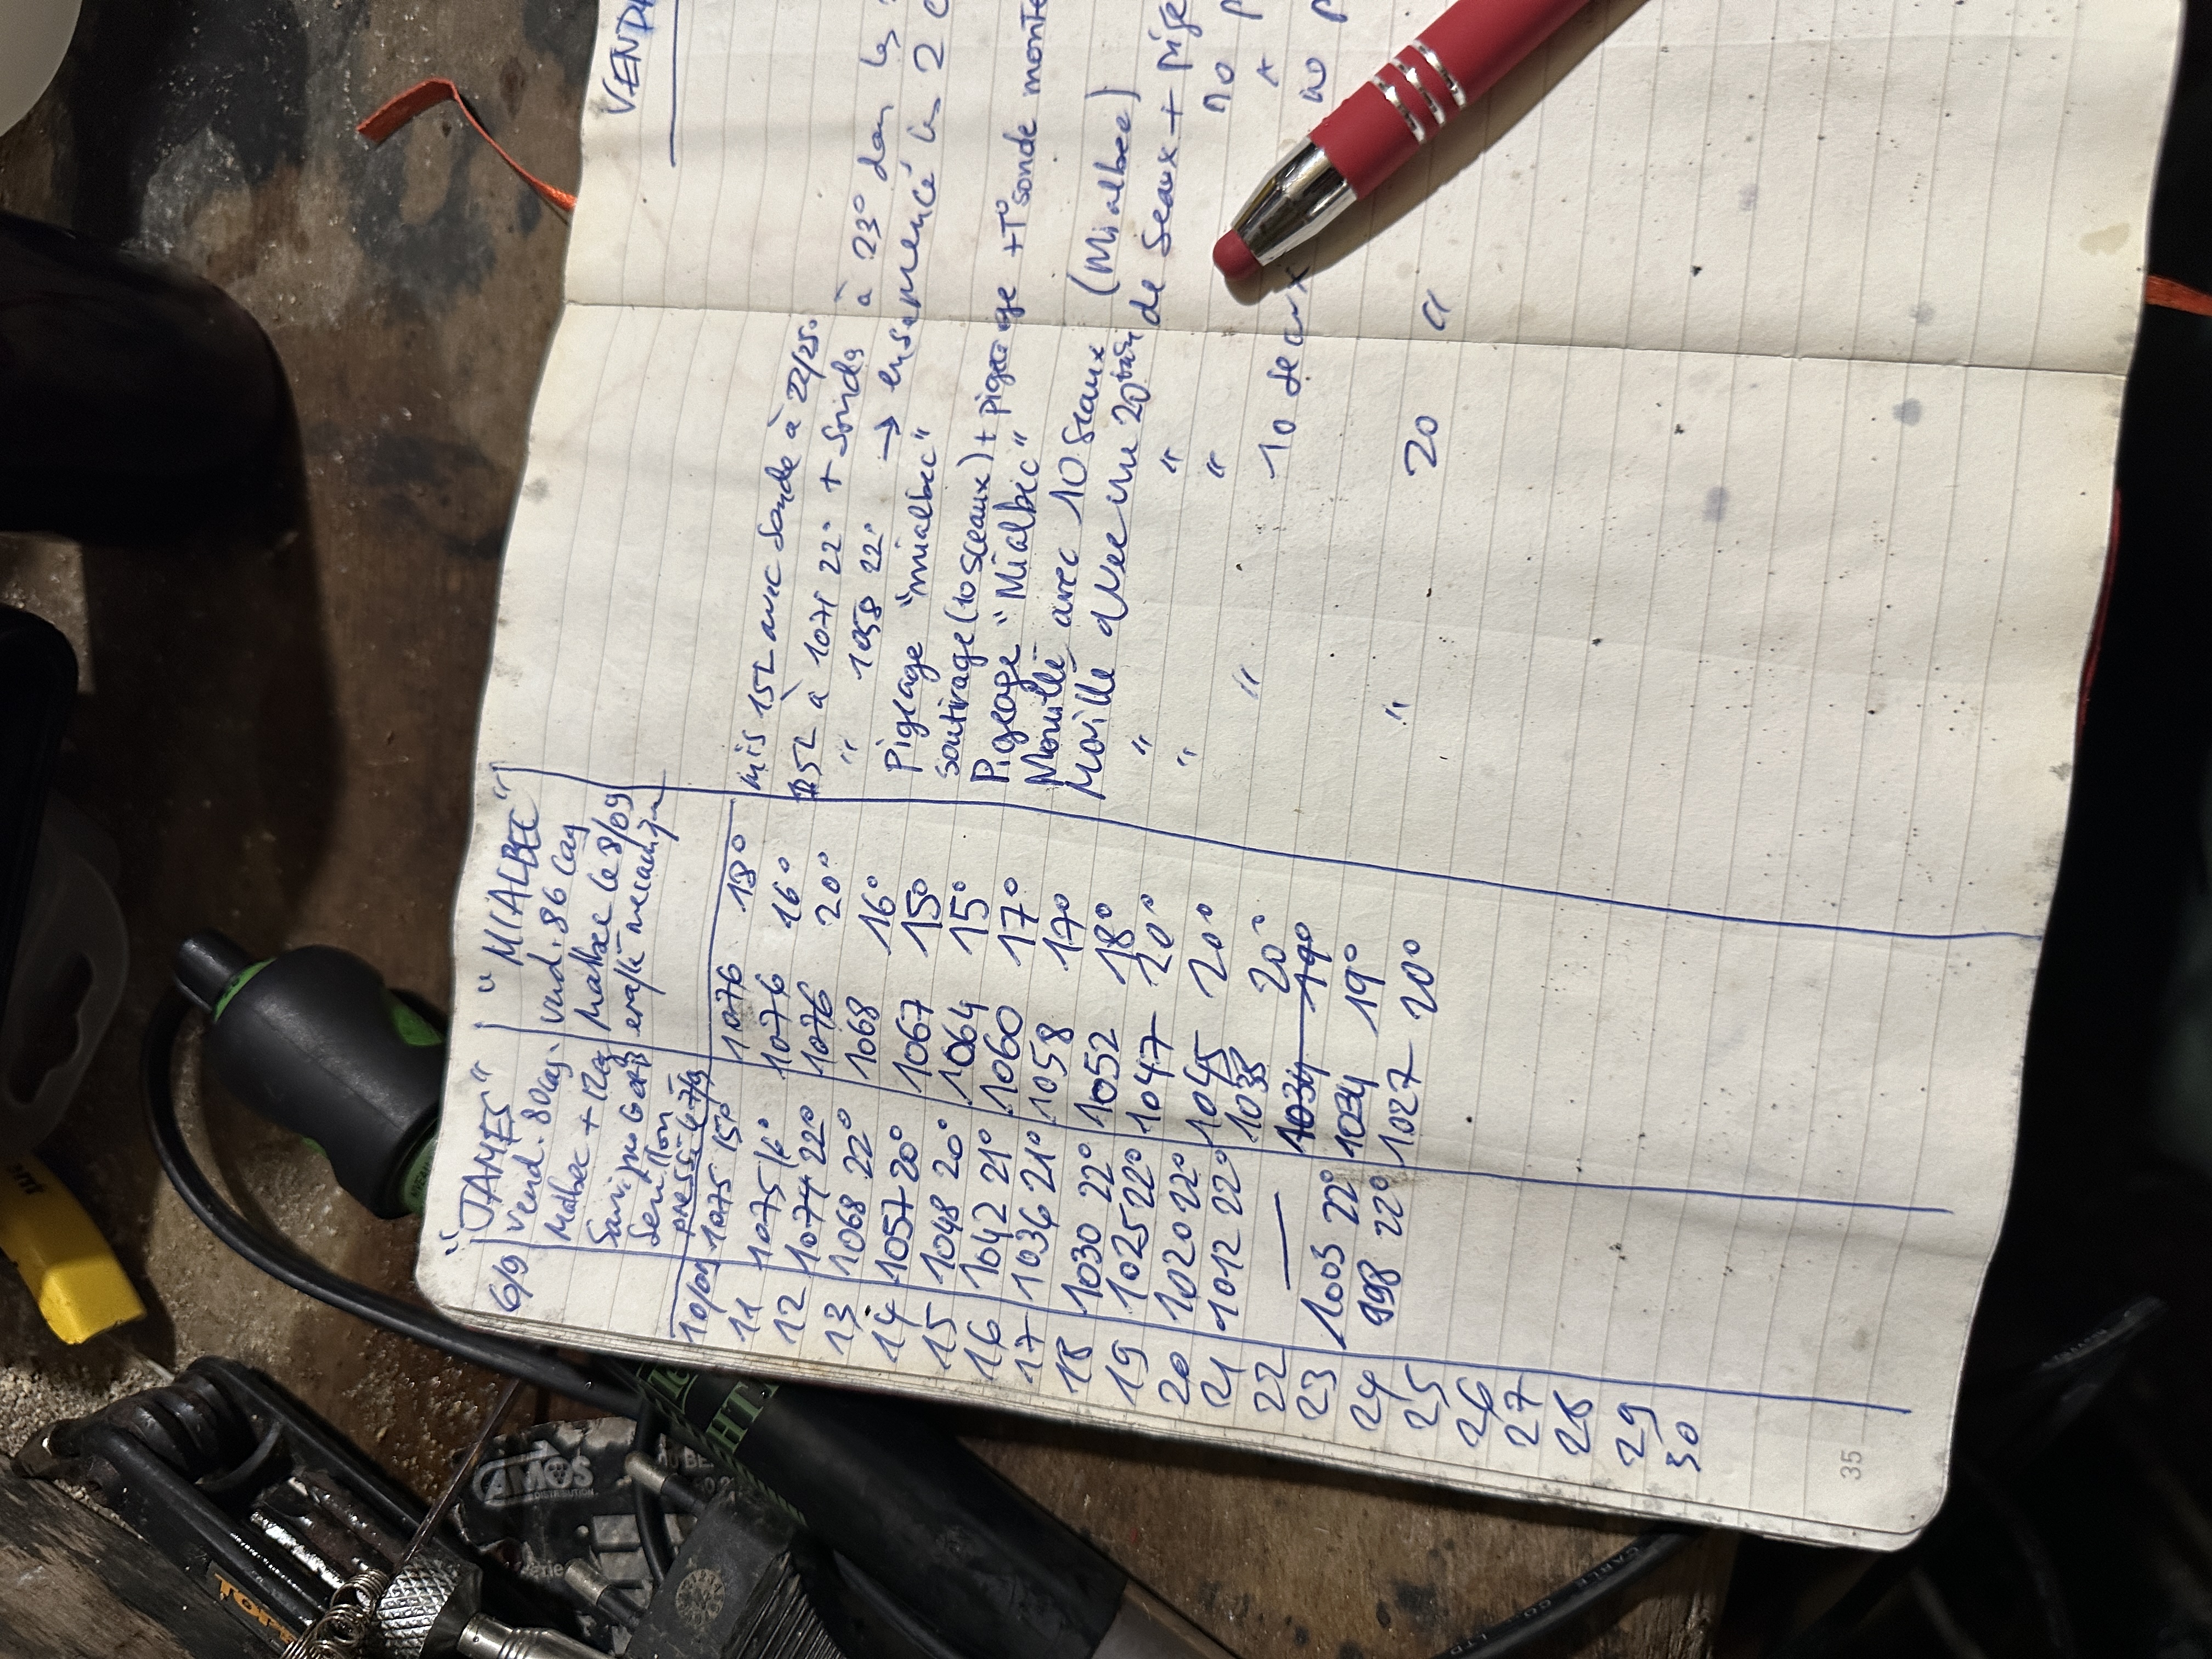 VEND
"JAMES" "MIALBEC"
6/9 Vend. 80 cag. Vend. 86 Cag
Malbec + 12 cag Malbec le 8/09
10/09 1075 15° 1076 18°
11 1075 16° 1076 16° mis 15L avec sonde à 22/25°
12 1074 22° 1076 20° 25L à 1071 22° + Sondes à 23° dans les
13 1068 22° 1068 16° " 1058 22° → ensemencé les 2
14 1057 20° 1067 15° Pigeage "mialbec"
15 1048 20° 1064 15° soutirage (10 sceaux) + pigeage + T° sonde
16 1042 21° 1060 17° Pigeage "Mialbec"
17 1036 21° 1058 17° Mouillé avec 10 seaux (Mialbec)
18 1030 22° 1052 18° Mouillé avec une 20taine de Seaux +
19 1025 22° 1047 20° " "
20 1020 22° 1045 20° " "
21 1012 22° 1038 20° " 10 seaux
22 — 1034 19°
23 1003 22° 1034 19°
24 998 22° 1027 20° " 20 "
25
26
27
28
29
30
35
AMOS
DISTRIBUTION